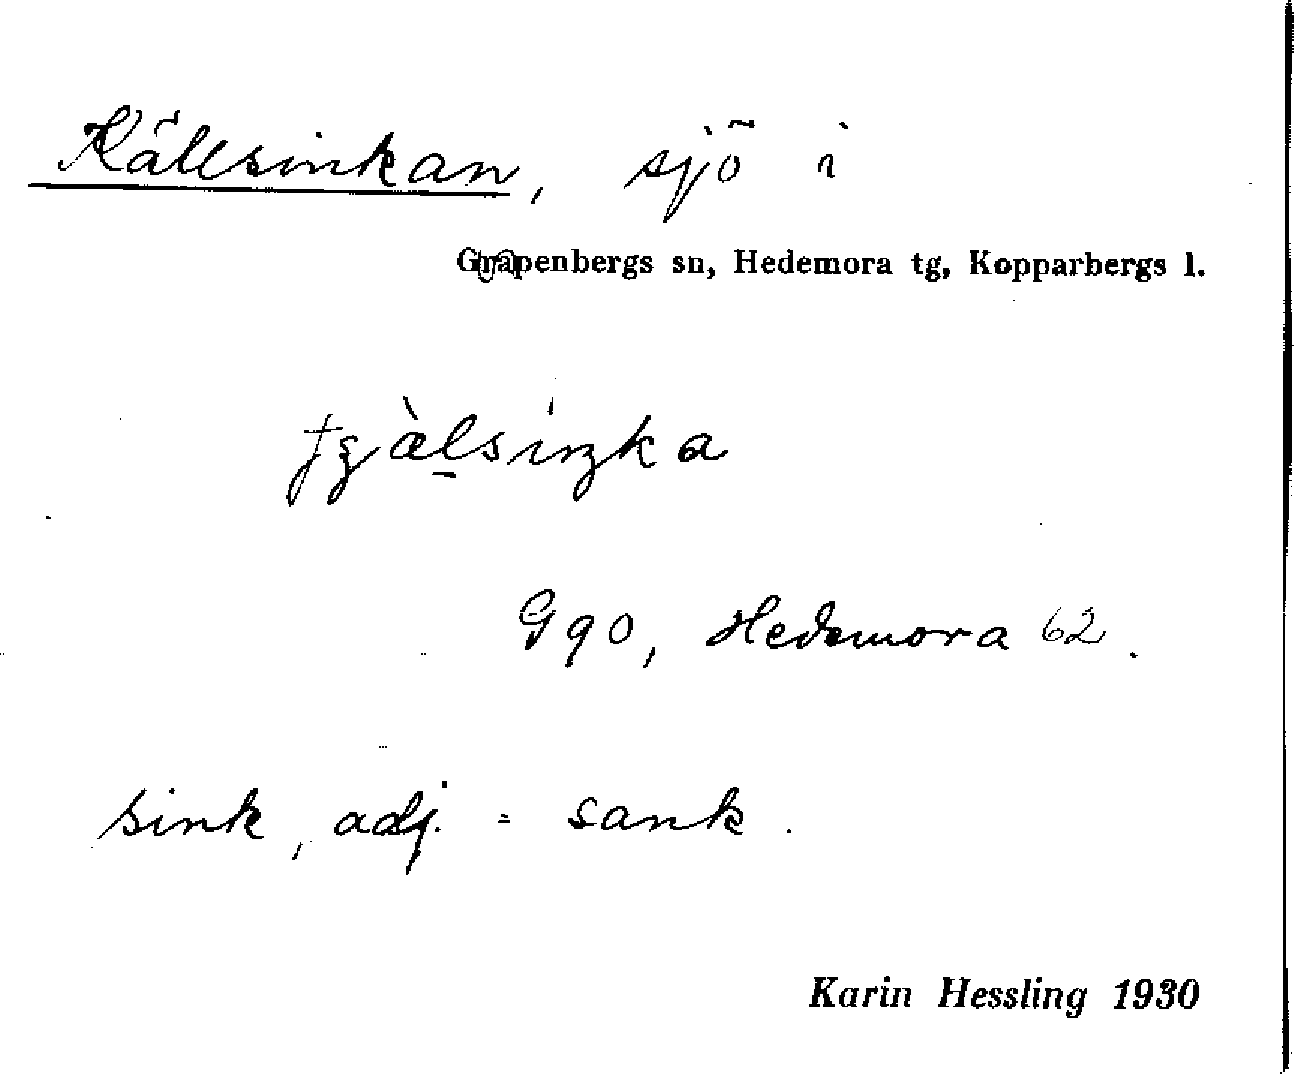 Källsinkan, sjö i
Garpenbergs sn, Hedemora tg, Kopparbergs l.
G90, Hedemora 62.
sink, adj. = sank.
Karin Hessling 1930